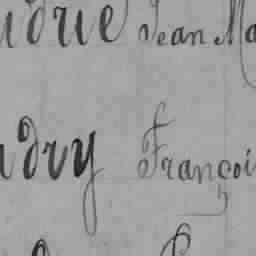 udrie Jean Ma
udry Françoi